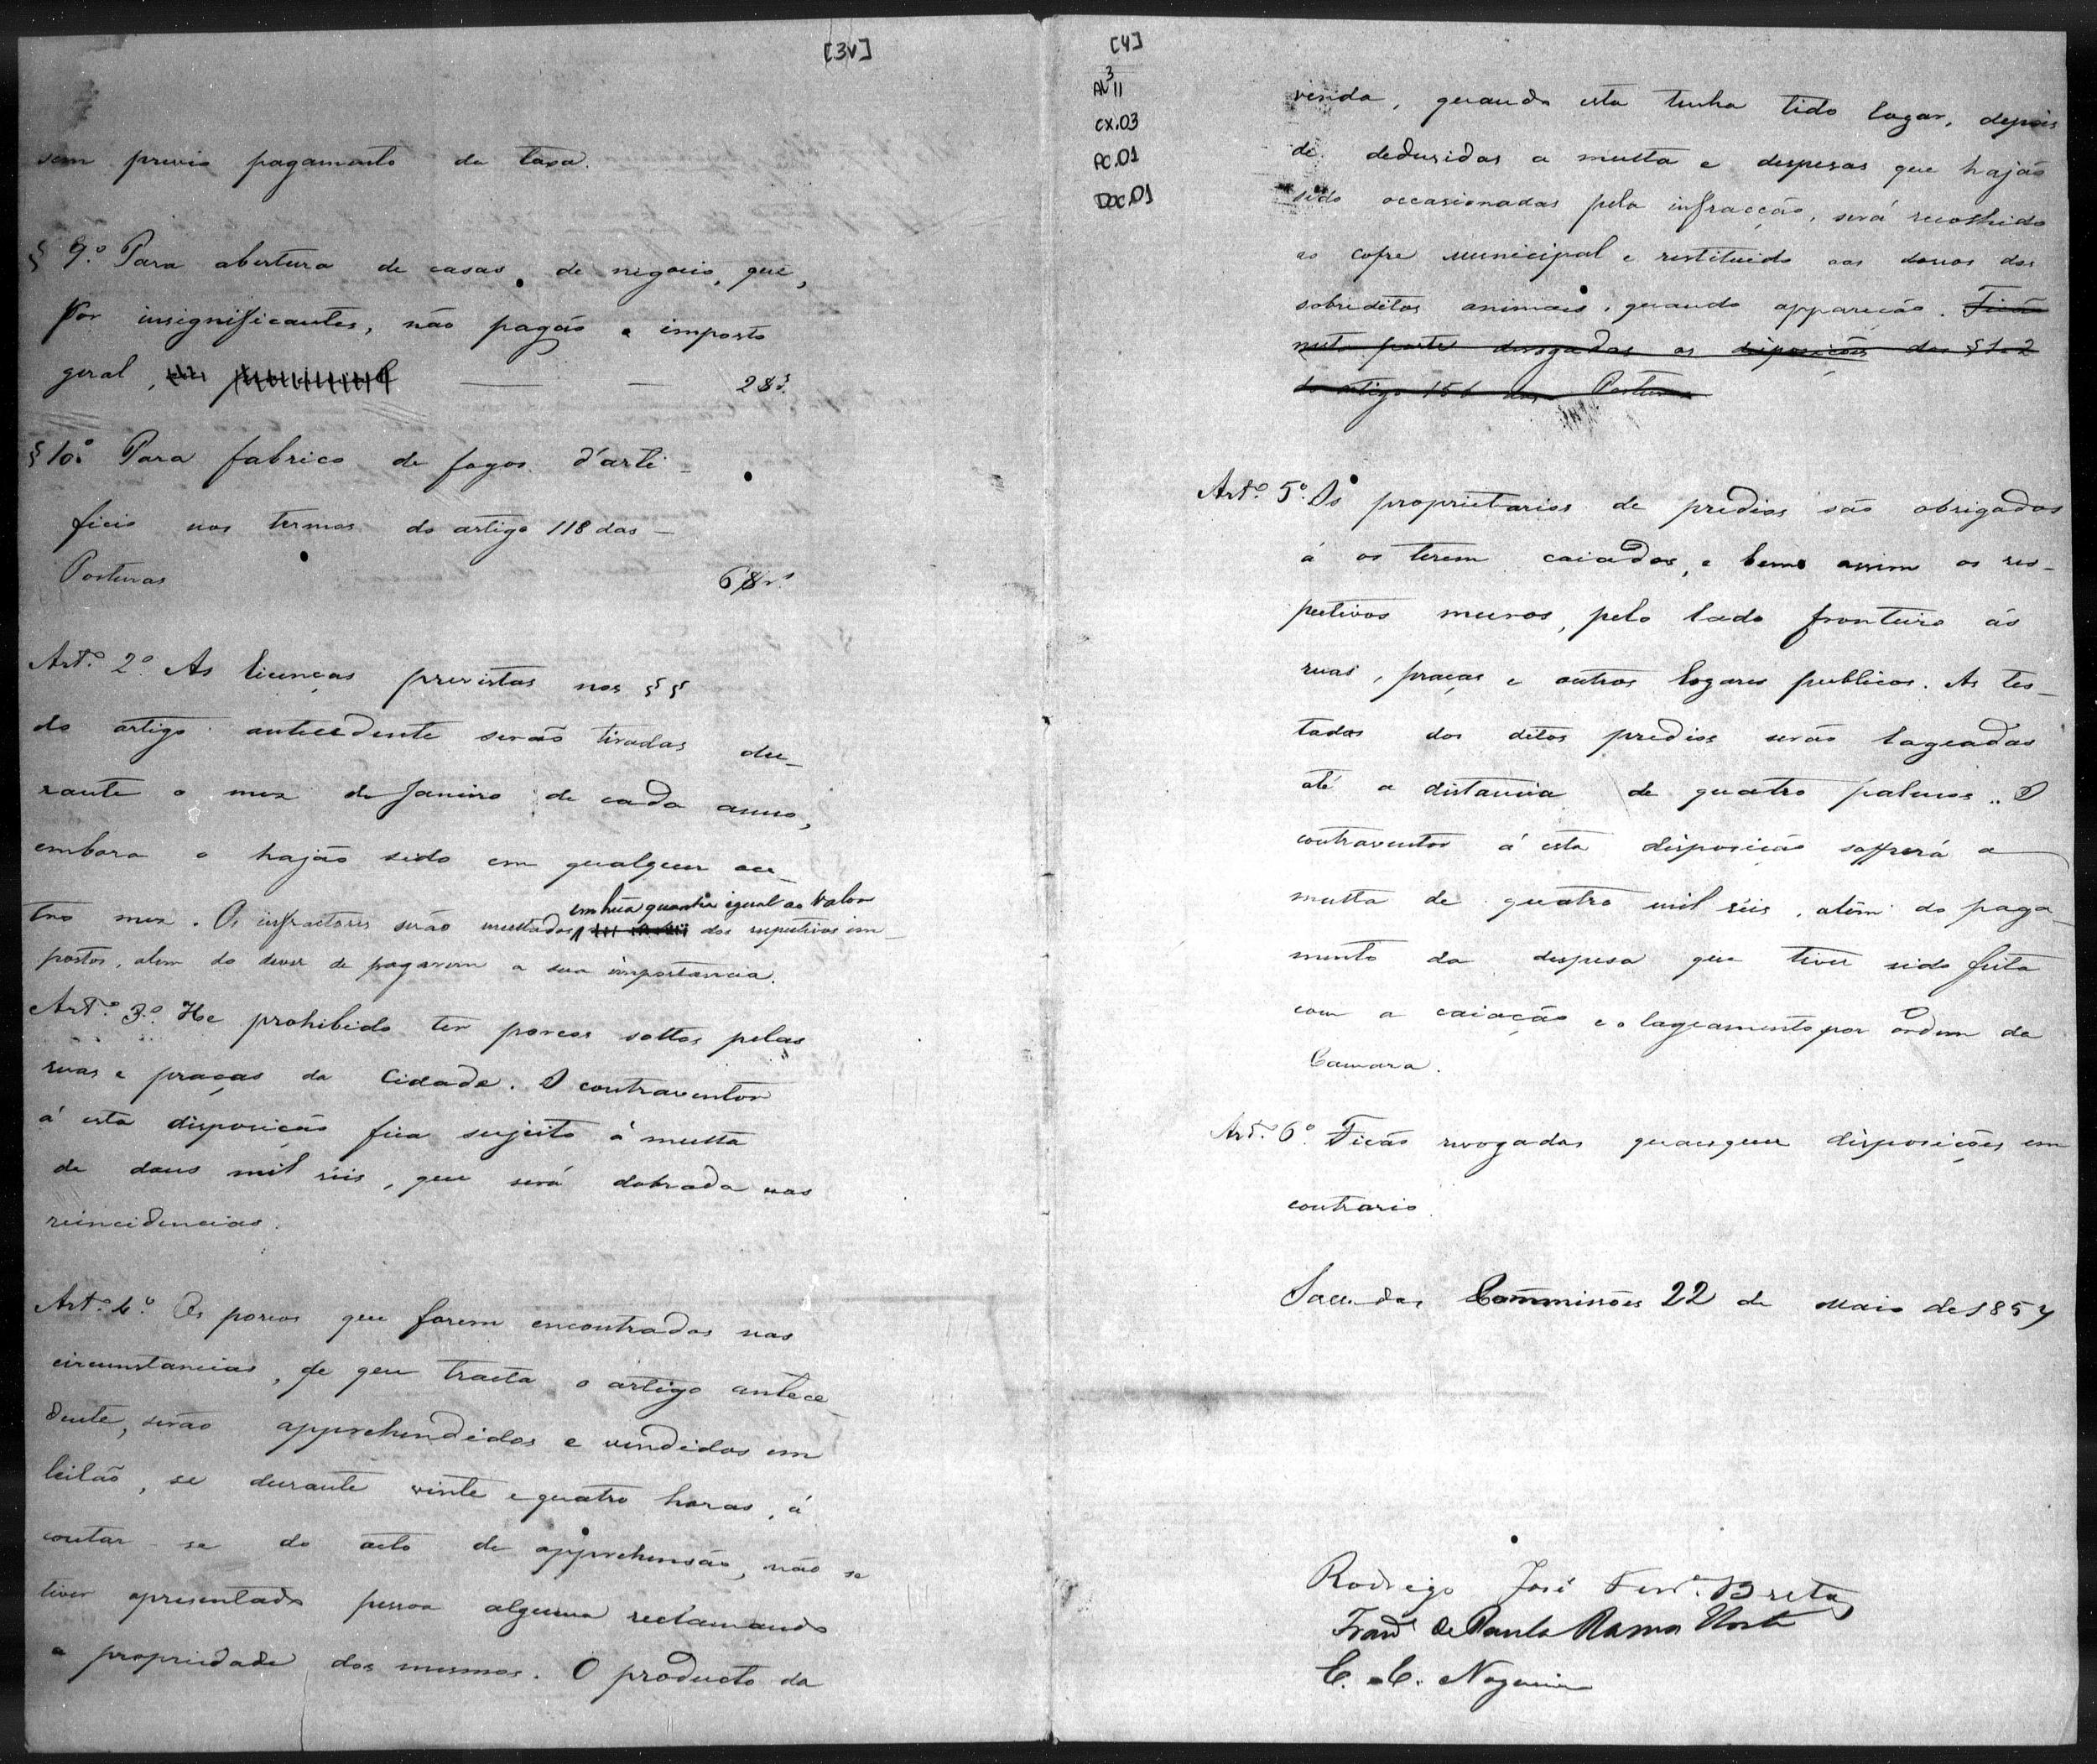 [3v]
sem previo pagamento da taxa.
§ 9.º Para abertura de casas de negocio, que,
por insignificantes, não pagão o imposto
geral,
§ 10.º Para fabrico de fogos d'arti-
ficio nos termos do artigo 118 das
Posturas
Art.º 2.º As licenças previstas nos §§
do artigo antecedente serão tiradas du-
rante o mez de Janeiro de cada anno,
embora o hajão sido em qualquer ou-
tro mez. Os infractores serão multados em hũa quantia igual ao valor dos respectivos im-
postos, alem do dever de pagarem a sua importancia.
Art.º 3.º He prohibido ter porcos soltos pelas
ruas e praças da Cidade. O contraventor
á esta disposição fica sujeito á multa
de dous mil réis, que será dobrada nas
reincidencias.
Art.º 4.º Os porcos que forem encontrados nas
circunstancias, de que tracta o artigo antece-
dente, serão apprehendidos e vendidos em
leilão, se durante vinte e quatro horas, á
contar-se do acto de apprehensão, não se
tiver apresentado pessoa alguma reclamando
a propriedade dos mesmos. O producto da
[4]
AL³11
CX.03
PC.01
DOC.01
venda, quando esta tenha tido lugar, depois
de deduzidas a multa e despesas que hajão
sido occasionadas pela infracção, será recolhido
ao cofre municipal e restituido aos donos dos
sobreditos animais, quando appareção. Ficão
nesta parte derogadas as disposições dos § 1. 2
do artigo 156 das Posturas
Art.º 5.º Os proprietarios de predios são obrigados
á os terem caiados, e bem assim os res-
pectivos muros, pelo lado fronteiro ás
ruas, praças e outros logares publicos. As tes-
tadas dos ditos predios serão lageadas
até a distancia de quatro palmos. O
contraventor á esta disposição soffrerá a
multa de quatro mil réis, alem do paga-
mento da despesa que tiver sido feita
com a caiação e o lageamento por ordem da
Camara.
Art.º 6.º Ficão revogadas quaesquer disposições em
contrario.
Salla das Commissões 22 de Maio de 1857
Rodrigo José Ferr.ª Bretas
Fran.co de Paula Ramos Horta
C. C. Nogueira